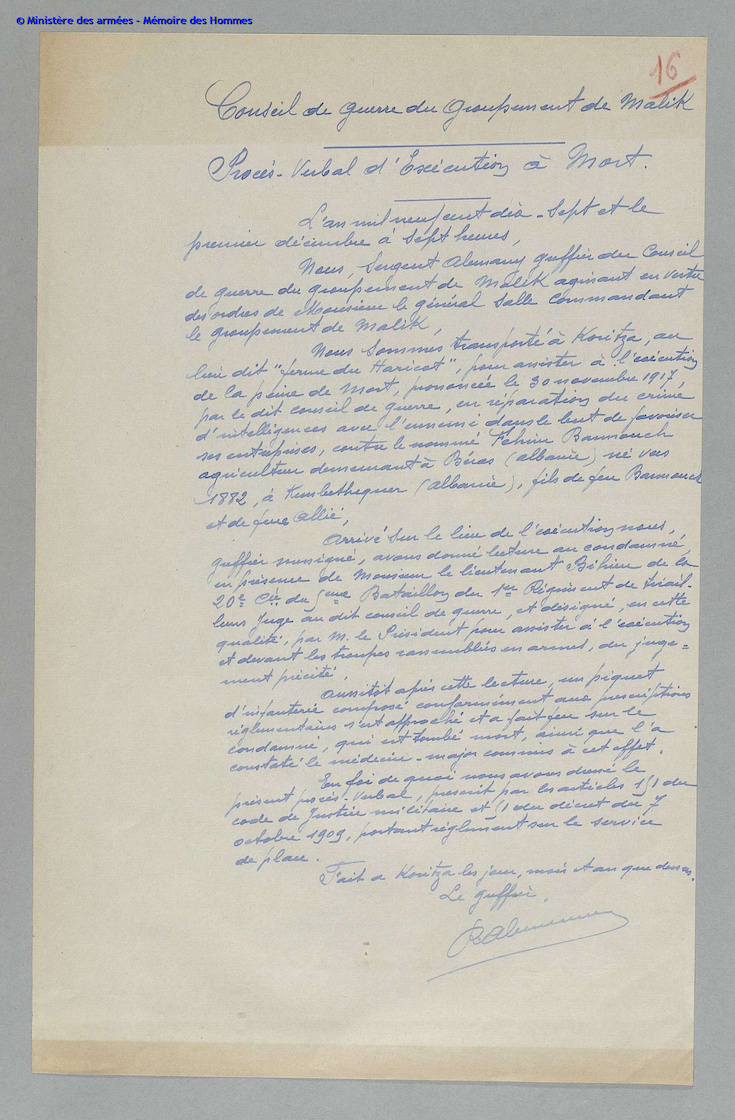 © Ministère des armées - Mémoire des Hommes
16
Conseil de guerre du Groupement de Malik
Procès-Verbal d'Exécution à Mort.
L'an mil neuf cent dix-sept et le
premier décembre à sept heures,
Nous, Sergent Alemany greffier du Conseil
de guerre du groupement de Malik agissant en vertu
des ordres de Monsieur le général Salle Commandant
le groupement de Malik,
Nous sommes transporté à Koritza, au
lieu dit "ferme du Haricot", pour assister à l'exécution
de la peine de Mort, prononcée le 30 novembre 1917,
par le dit conseil de guerre, en réparation du crime
d'intelligences avec l'ennemi dans le but de favoriser
ses entreprises, contre le nommé Fehim
agriculteur demeurant à (albanie) né vers
1882, à (albanie), fils de feu
et de feue Allié,
Arrivé sur le lieu de l'exécution nous,
greffier soussigné, avons donné lecture au condamné,
en présence de Monsieur le lieutenant Béhier de la
20e Cie du 5eme Bataillon du 1er Régiment de tirail-
leurs Juge au dit conseil de guerre, et désigné, en cette
qualité, par M. le Président pour assister à l'exécution
et devant les troupes rassemblées en armes, du juge=
ment précité.
Aussitôt après cette lecture, un piquet
d'infanterie composé conformément aux prescriptions
réglementaires s'est approché et a fait feu sur le
condamné, qui est tombé mort, ainsi que l'a
constaté le médecin-major commis à cet effet.
En foi de quoi nous avons dressé le
présent procès-verbal, prescrit par les articles 151 du
code de Justice militaire et 51 du décret du 7
octobre 1909, portant réglement sur le service
de place.
Fait a Koritza les jour, mois et an que dessus.
Le greffier,